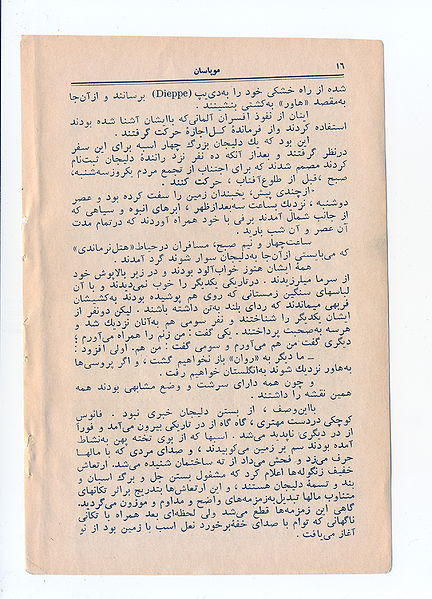 ۱۶
موپاسان
شده از راه خشکی خود را به‌دی‌یپ (Dieppe) برسانند و از‌آن‌جا
به‌مقصد «هاور» به‌کشتی بنشینند .
اینان از نفوذ افسران آلمانی‌که باایشان آشنا شده بودند
استفاده کردند واز فرماندهٔ کل‌اجازهٔ حرکت گرفتند .
این بود که یك دلیجان بزرگ چهار اسبه برای این سفر
درنظر گرفتند و بعداز آنکه ده نفر نزد رانندهٔ دلیجان ثبت‌نام
کردند مصمم شدند که برای اجتناب از تجمع مردم یکروزسه‌شنبه،
صبح ،قبل از طلوع‌آفتاب ، حرکت کنند .
ازچندی پیش، یخبندان زمین را سفت کرده بود و عصر
دوشنبه ، نزدیك بساعت سه‌بعدازظهر ، ابرهای انبوه و سیاهی که
از جانب شمال آمدند برفی با خود همراه آوردند که درتمام مدت
آن عصر و آن شب بارید .
ساعت‌چهار و نیم صبح، مسافران درحیاط«هتل‌نرماندی»
که می‌بایستی ازآن‌جا به‌دلیجان سوار شوند گرد آمدند .
همهٔ ایشان هنوز خواب‌آلود بودند و در زیر بالاپوش خود
از سرما میلرزیدند . درتاریکی یکدیگر را خوب نمی‌دیدند و با آن
لباسهای سنگین زمستانی که روی هم پوشیده بودند به‌کشیشان
فربهی میماندند که ردای بلند به‌تن داشته باشند . لیکن دونفر از
ایشان یکدیگر را شناختند و نفر سومی هم به‌آنان نزدیك شد و
هرسه به‌صحبت پرداختند . یکی گفت : من زنم را همراه می‌آورم ؛
دیگری گفت من هم می‌آورم و سومی گفت : من هم. اولی افزود :
ــ ما دیگر به «روان» باز نخواهیم گشت ، و اگر پروسی‌ها
به‌هاور نزدیك شوند به‌انگلستان خواهیم رفت .
و چون همه دارای سرشت و وضع مشابهی بودند همه
همین نقشه را داشتند .
بااین‌وصف ، از بستن دلیجان خبری نبود . فانوس
کوچکی دردست مهتری ، گاه گاه از در تاریکی بیرون می‌آمد و فوراً
از در دیگری ناپدید می‌شد . اسبها که از بوی تخته پهن به‌نشاط
آمده بودند سم بر زمین می‌کوبیدند ، و صدای مردی که با مالها
حرف می‌زد و فحش می‌داد از ته ساختمان شنیده می‌شد. ارتعاش
خفیف زنگوله‌ها اعلام کرد که مشغول بستن جل و برگ اسبان و
بند و تسمهٔ دلیجان هستند ، و این ارتعاش‌ها بتدریج براثر تکانهای
متناوب مالها تبدیل به‌زمزمه‌های واضح و مداوم و موزون می‌گردید.
گاهی این زمزمه‌ها قطع می‌شد ولی لحظه‌ای بعد همراه با تکانی
ناگهانی که توام با صدای خفهٔ‌برخورد نعل اسب با زمین بود از نو
آغاز می‌یافت .